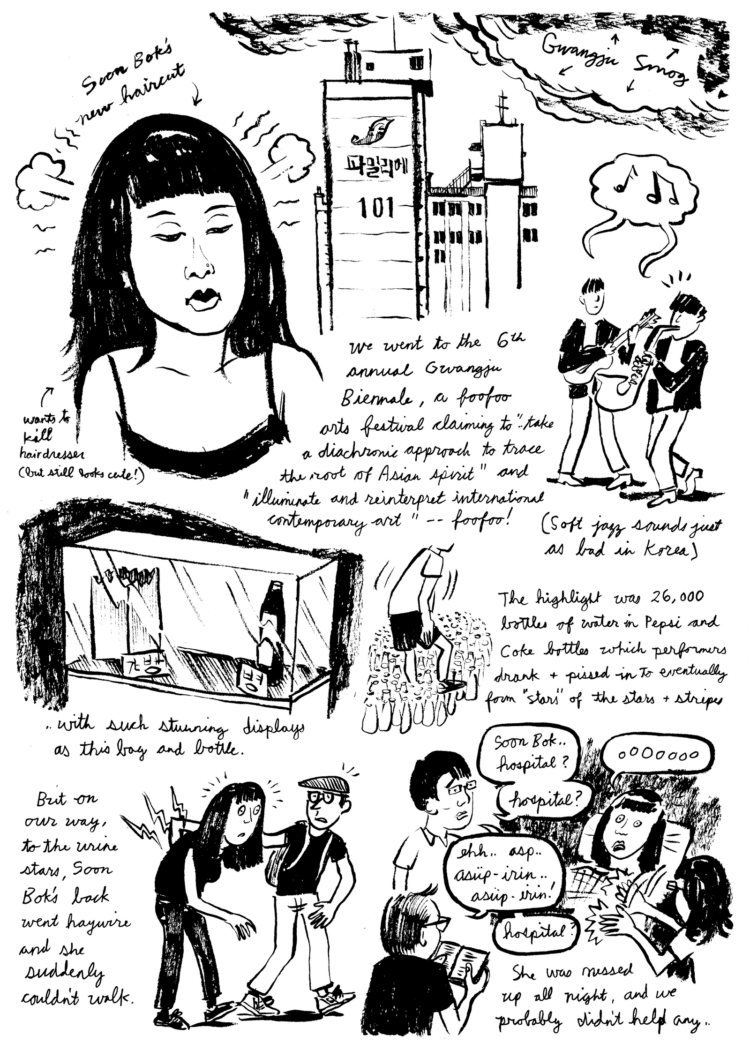 Soon Bok's
new haircut
Gwangju Smog
파밀리에
101
wants to
kill
hairdresser
(but still looks cute!)
We went to the 6th
annual Gwangju
Biennale, a foofoo
arts festival claiming to "..take
a diachronic approach to trace
the root of Asian spirit" and
"illuminate and reinterpret international
contemporary art" -- foofoo!
(Soft jazz sounds just
as bad in Korea)
병
..with such stunning displays
as this bag and bottle.
The highlight was 26,000
bottles of water in Pepsi and
Coke bottles which performers
drank + pissed in to eventually
form "stars" of the stars + stripes
But on
our way,
to the urine
stars, Soon
Bok's back
went haywire
and she
suddenly
couldn't walk.
Soon Bok..
hospital?
hospital?
oooooooo
ehh.. asp..
asüp-irin..
asüp-irin!
hospital?
She was messed
up all night, and we
probably didn't help any..